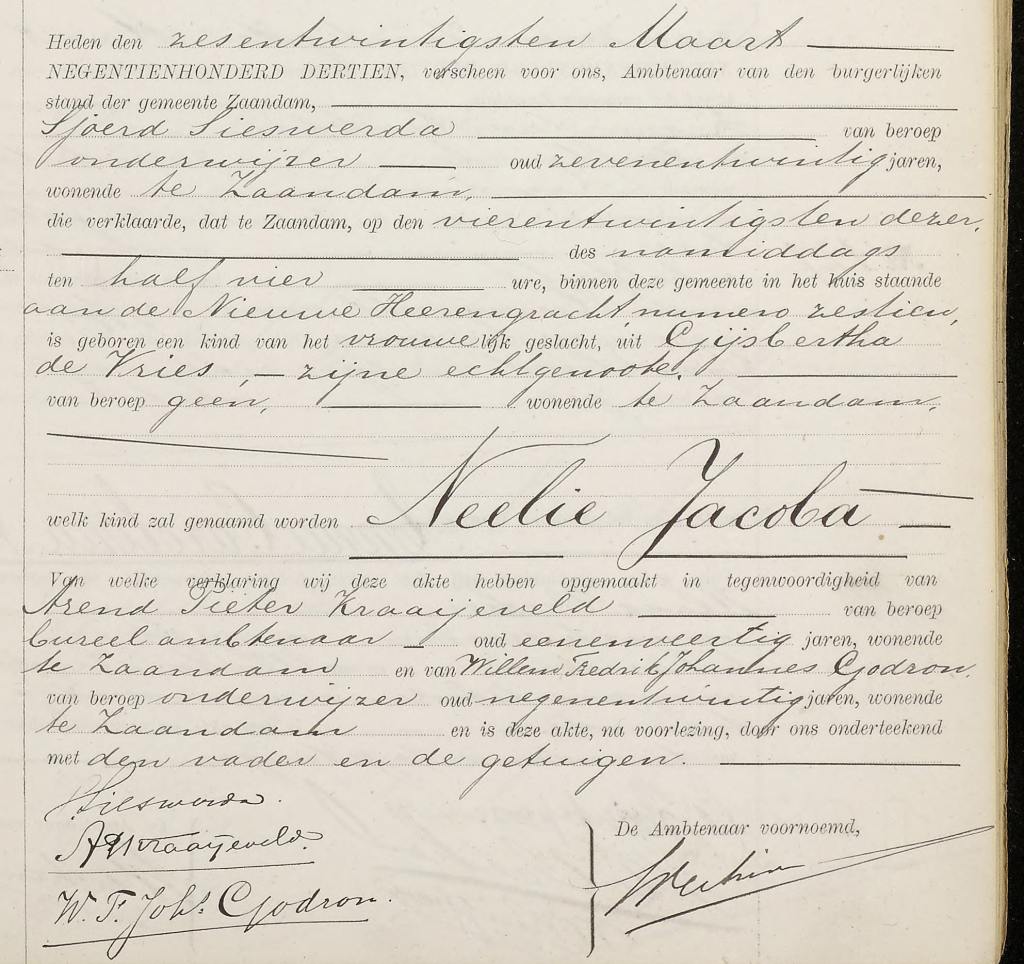 Heden den zesentwintigsten Maart
NEGENTIENHONDERD DERTIEN, verscheen voor ons, Ambtenaar van den burgerlijken
stand der gemeente Zaandam,
Sjoerd Sieswerda van beroep
onderwijzer oud zevenentwintig jaren,
wonende te Zaandam,
die verklaarde, dat te Zaandam, op den vierentwintigsten dezer,
des namiddags
ten half vier ure, binnen deze gemeente in het huis staande
aan de Nieuwe Heerengracht, numero zestien,
is geboren een kind van het vrouwelijk geslacht, uit Gijsbertha
de Vries, zijne echtgenoote,
van beroep geen, wonende te Zaandam,
welk kind zal genaamd worden Neelie Jacoba
Van welke verklaring wij deze akte hebben opgemaakt in tegenwoordigheid van
Arend Pieter Kraaijeveld van beroep
bureelambtenaar oud eenenveertig jaren, wonende
te Zaandam en van Willem Fredrik Johannes Godron,
van beroep onderwijzer oud negenentwintig jaren, wonende
te Zaandam en is deze akte, na voorlezing, door ons onderteekend
met den vader en de getuigen.
Sieswerda.
De Ambtenaar voornoemd,
AP Kraaijeveld.
W. F. Johs. Godron.